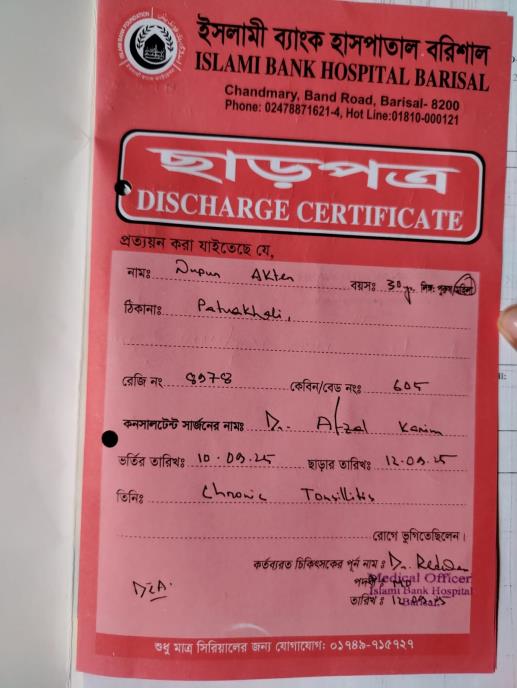 ইসলামী ব্যাংক হাসপাতাল বরিশাল
ISLAMI BANK HOSPITAL BARISAL
Chandmary, Band Road, Barisal- 8200
Phone: 02478871621-4, Hot Line:01810-000121
ছাড়পত্র
DISCHARGE CERTIFICATE
প্রত্যয়ন করা যাইতেছে যে,
নামঃ Nupur Akter বয়সঃ 30y লিঙ্গ: পুরুষ/মহিলা
ঠিকানাঃ Patuakhali,
রেজি নং 8978 কেবিন/বেড নংঃ 605
কনসালটেন্ট সার্জনের নামঃ Dr. Afzal Karim
ভর্তির তারিখঃ 10.09.25 ছাড়ার তারিখঃ 12.09.25
তিনিঃ Chronic Tonsillitis
রোগে ভুগিতেছিলেন।
কর্তব্যরত চিকিৎসকের পূর্ন নাম : Dr. Redwan
পদবী : MO Medical Officer
Islami Bank Hospital
তারিখ : 12.09.25 Barisal.
শুধু মাত্র সিরিয়ালের জন্য যোগাযোগ: ০১৭৪৯-৭১৫৭২৭